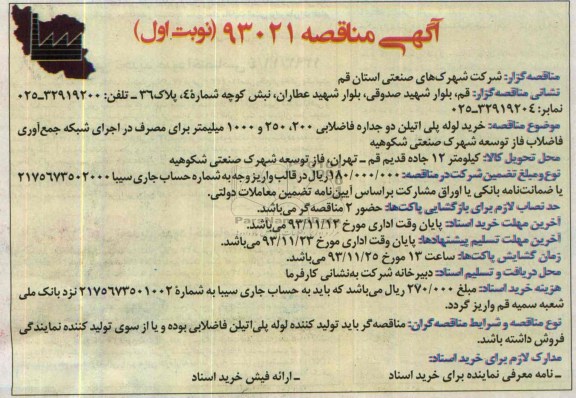 آگهی مناقصه ۹۳۰۲۱ (نوبت اول)
مناقصه‌گزار: شرکت شهرک‌های صنعتی استان قم
نشانی مناقصه‌گزار: قم، بلوار شهید صدوقی، بلوار شهید عطاران، نبش کوچه شمارۀ٤، پلاک٣٦ ـ تلفن: ٣٢٩١٩٢٠٠ـ٠٢٥
نمابر: ٣٢٩١٩٢٠٤ـ٠٢٥
موضوع مناقصه: خرید لوله پلی اتیلن دو جداره فاضلابی ٢٠٠، ٢٥٠ و ١٠٠٠ میلیمتر برای مصرف در اجرای شبکه جمع‌آوری
فاضلاب فاز توسعه شهرک صنعتی شکوهیه
محل تحویل کالا: کیلومتر ١٢ جاده قدیم قم ـ تهران، فاز توسعه شهرک صنعتی شکوهیه
نوع و مبلغ تضمین شرکت در مناقصه: ١٨٠/٠٠٠/٠٠٠ ریال در قالب واریز وجه به شماره حساب جاری سیبا ٢١٧٥٦٧٣٥٠٢٠٠٠
یا ضمانت‌نامه بانکی یا اوراق مشارکت براساس آیین‌نامه تضمین معاملات دولتی.
حد نصاب لازم برای بازگشایی پاکت‌ها: حضور ٢ مناقصه‌گر می‌باشد.
آخرین مهلت خرید اسناد: پایان وقت اداری مورخ ٩٣/١١/١٢ می‌باشد.
آخرین مهلت تسلیم پیشنهادها: پایان وقت اداری مورخ ٩٣/١١/٢٣ می‌باشد.
زمان گشایش پاکت‌ها: ساعت ١٣ مورخ ٩٣/١١/٢٥ می‌باشد.
محل دریافت و تسلیم اسناد: دبیرخانه شرکت به‌نشانی کارفرما
هزینه خرید اسناد: مبلغ ٢٧٠/٠٠٠ ریال می‌باشد که باید به حساب جاری سیبا به شمارۀ ٢١٧٥٦٧٣٥٠١٠٠٢ نزد بانک ملی
شعبه سمیه قم واریز گردد.
نوع مناقصه و شرایط مناقصه‌گران: مناقصه‌گر باید تولید کننده لوله پلی‌اتیلن فاضلابی بوده و یا از سوی تولید کننده نمایندگی
فروش داشته باشد.
مدارک لازم برای خرید اسناد:
ـ نامه معرفی نماینده برای خرید اسناد ـ ارائه فیش خرید اسناد